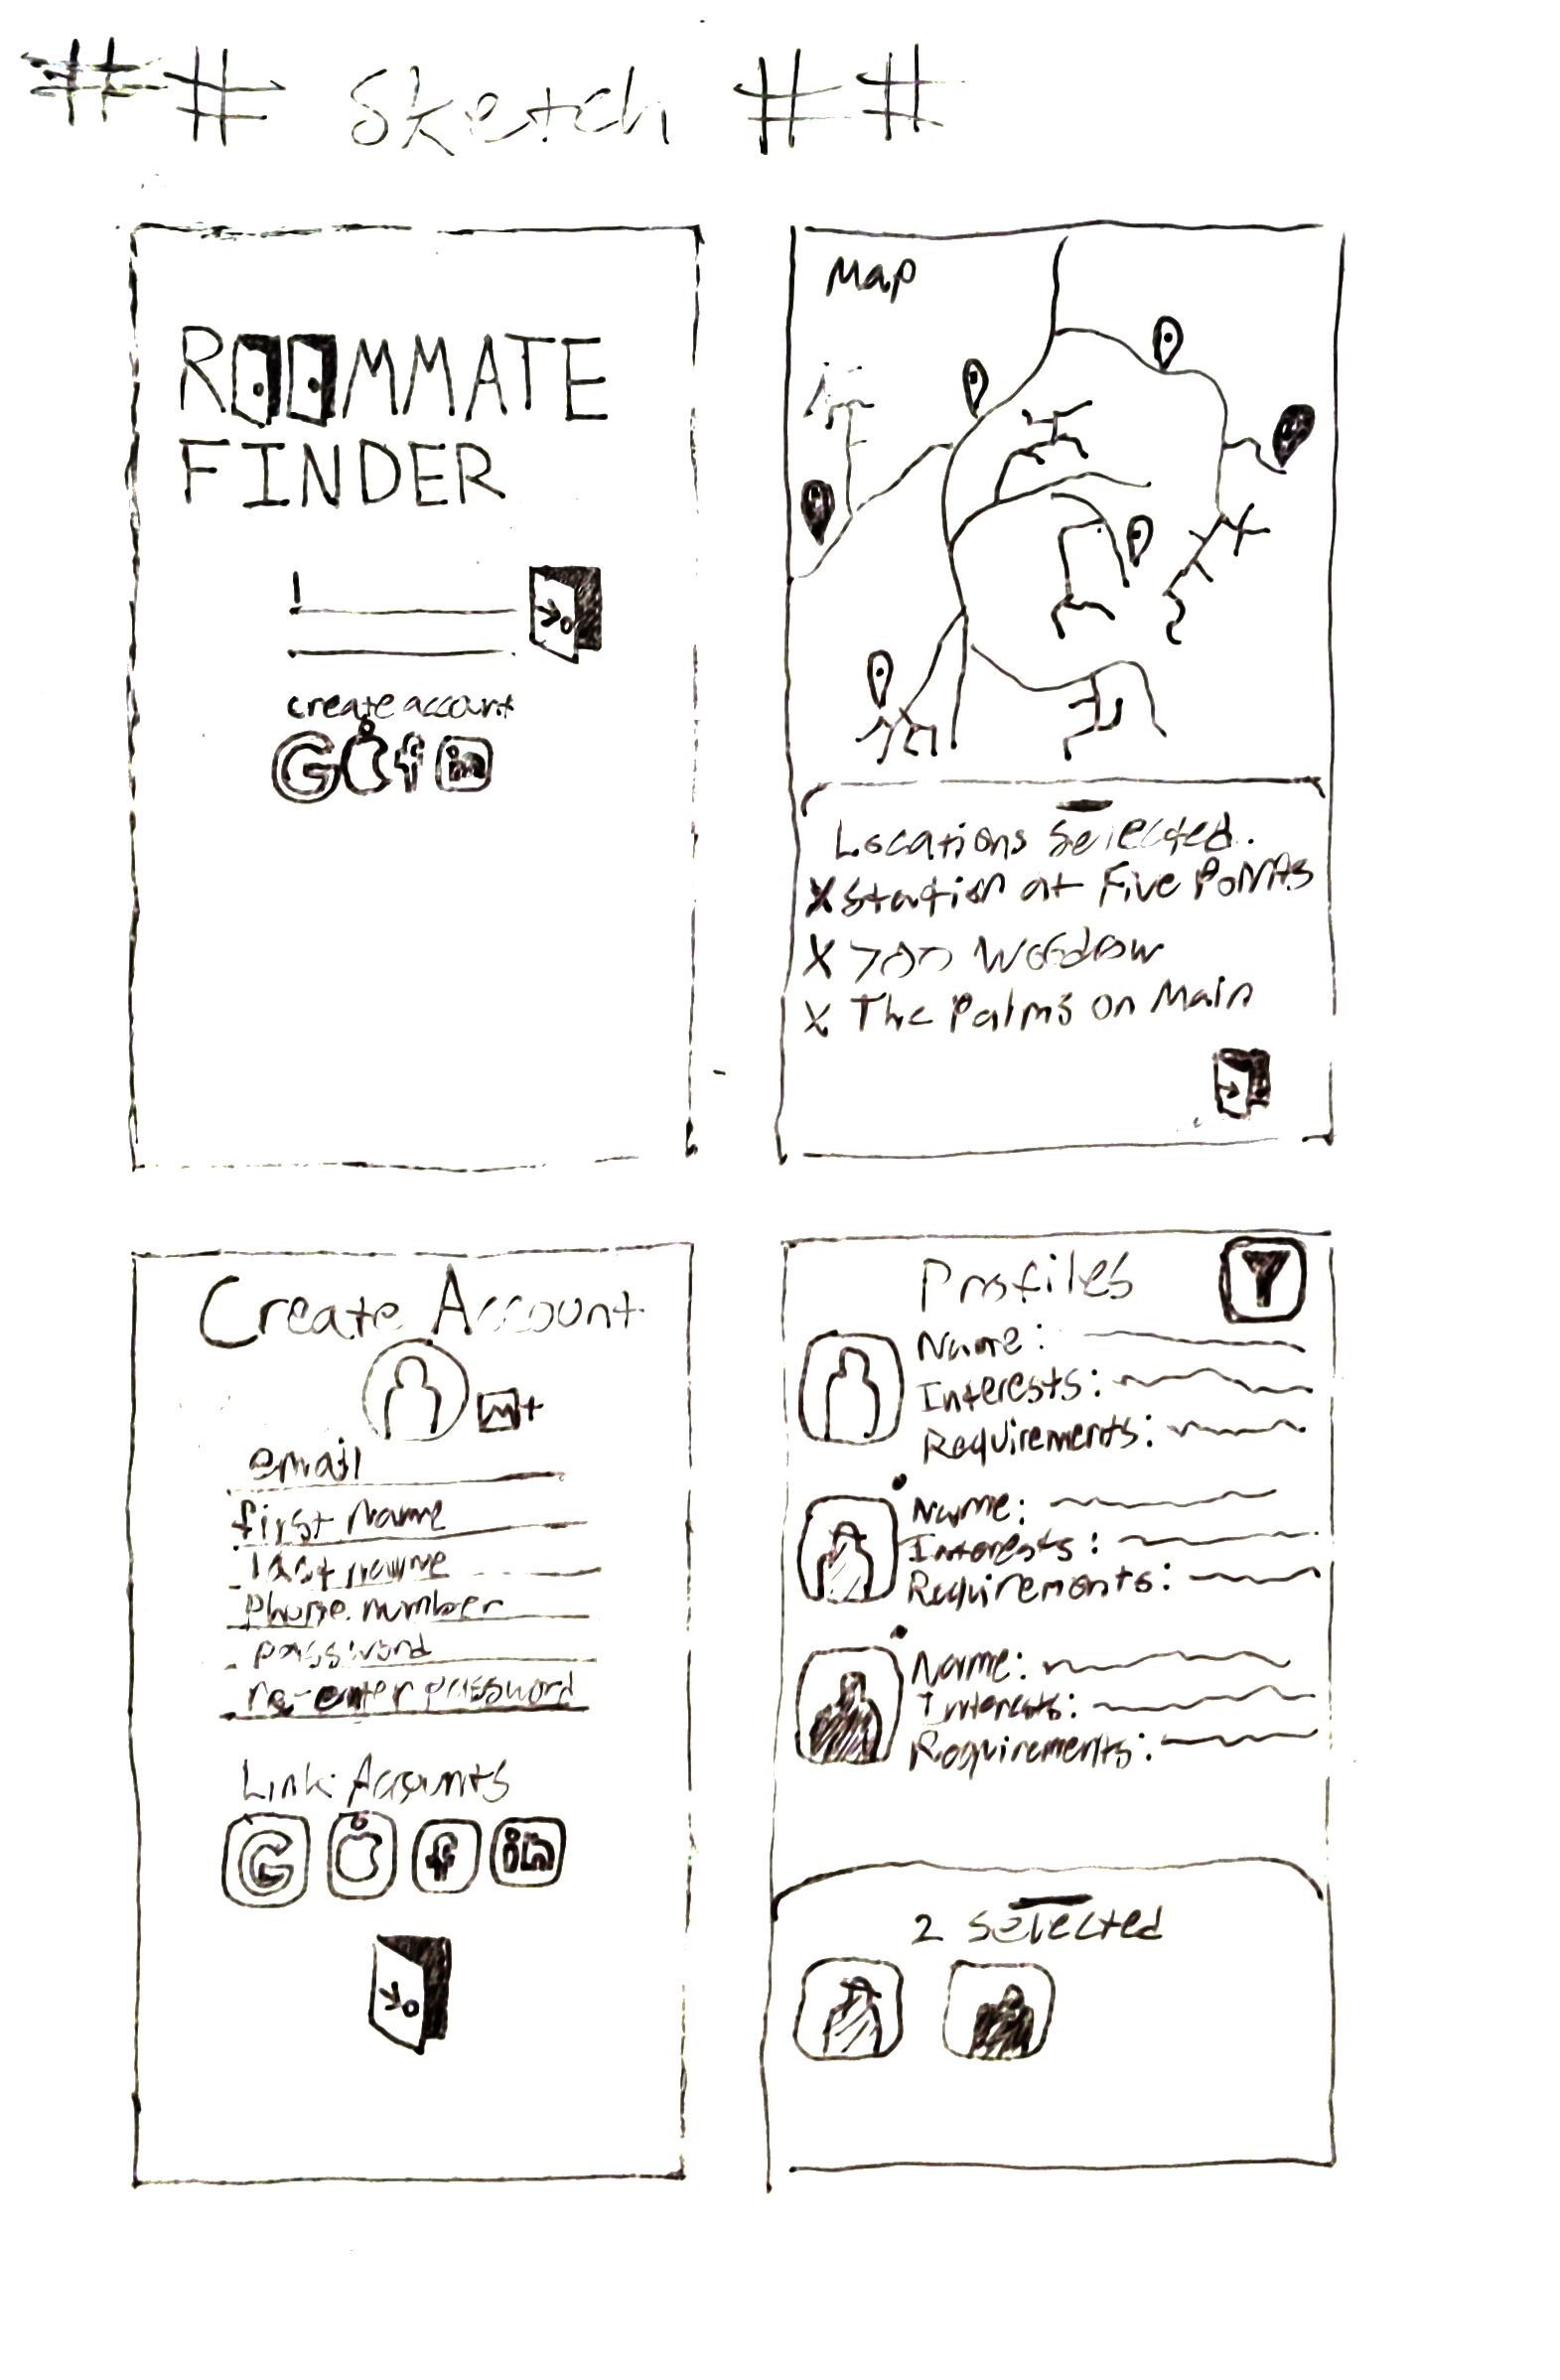 ## Sketch ##
ROOMMATE
FINDER
create account
G f in
Map
Locations Selected.
X Station at Five Points
X Woodrow
X The Palms on Main
Create Account
email
first name
last name
phone number
password
re-enter password
Link Accounts
G f in
Profiles
Name:
Interests:
Requirements:
Name:
Interests:
Requirements:
Name:
Interests:
Requirements:
2 selected